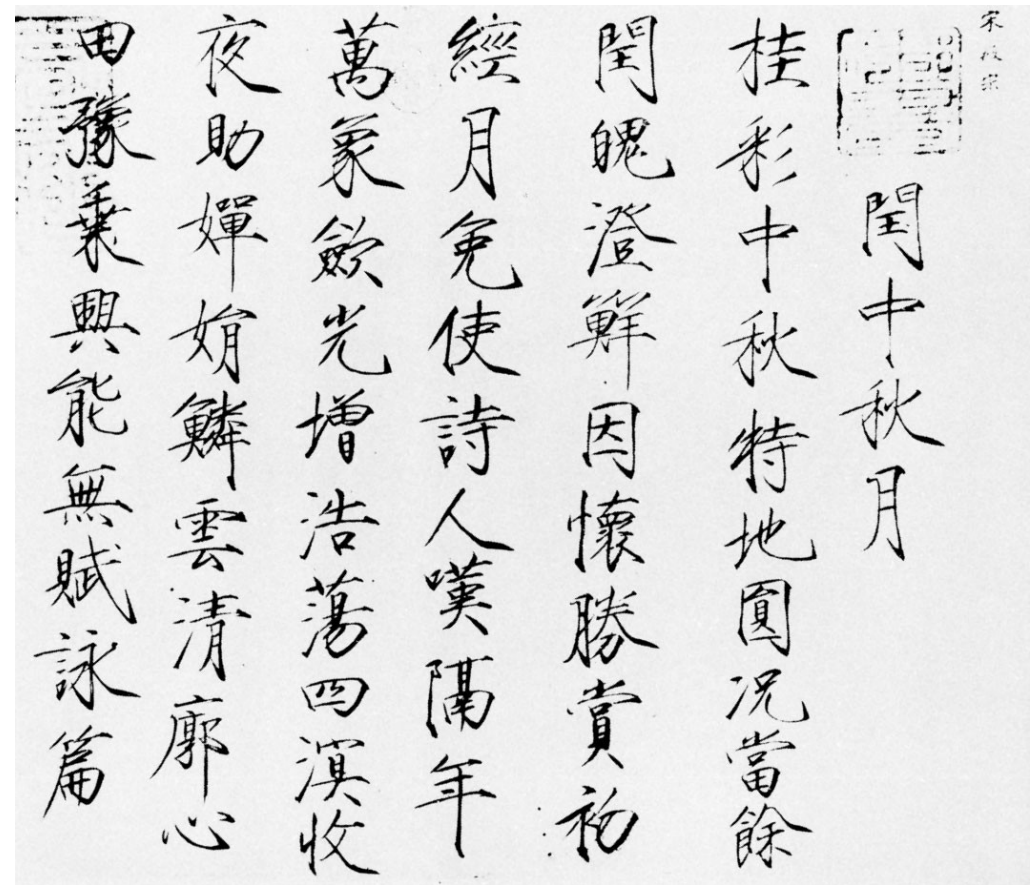 宋徽宗
閏中秋月
桂彩中秋特地圓况當餘
閏魄澄鮮因懷勝賞初
經月免使詩人嘆隔年
萬象歛光增浩蕩四溟收
夜助嬋娟鱗雲清廓心
田豫乗興能無賦詠篇